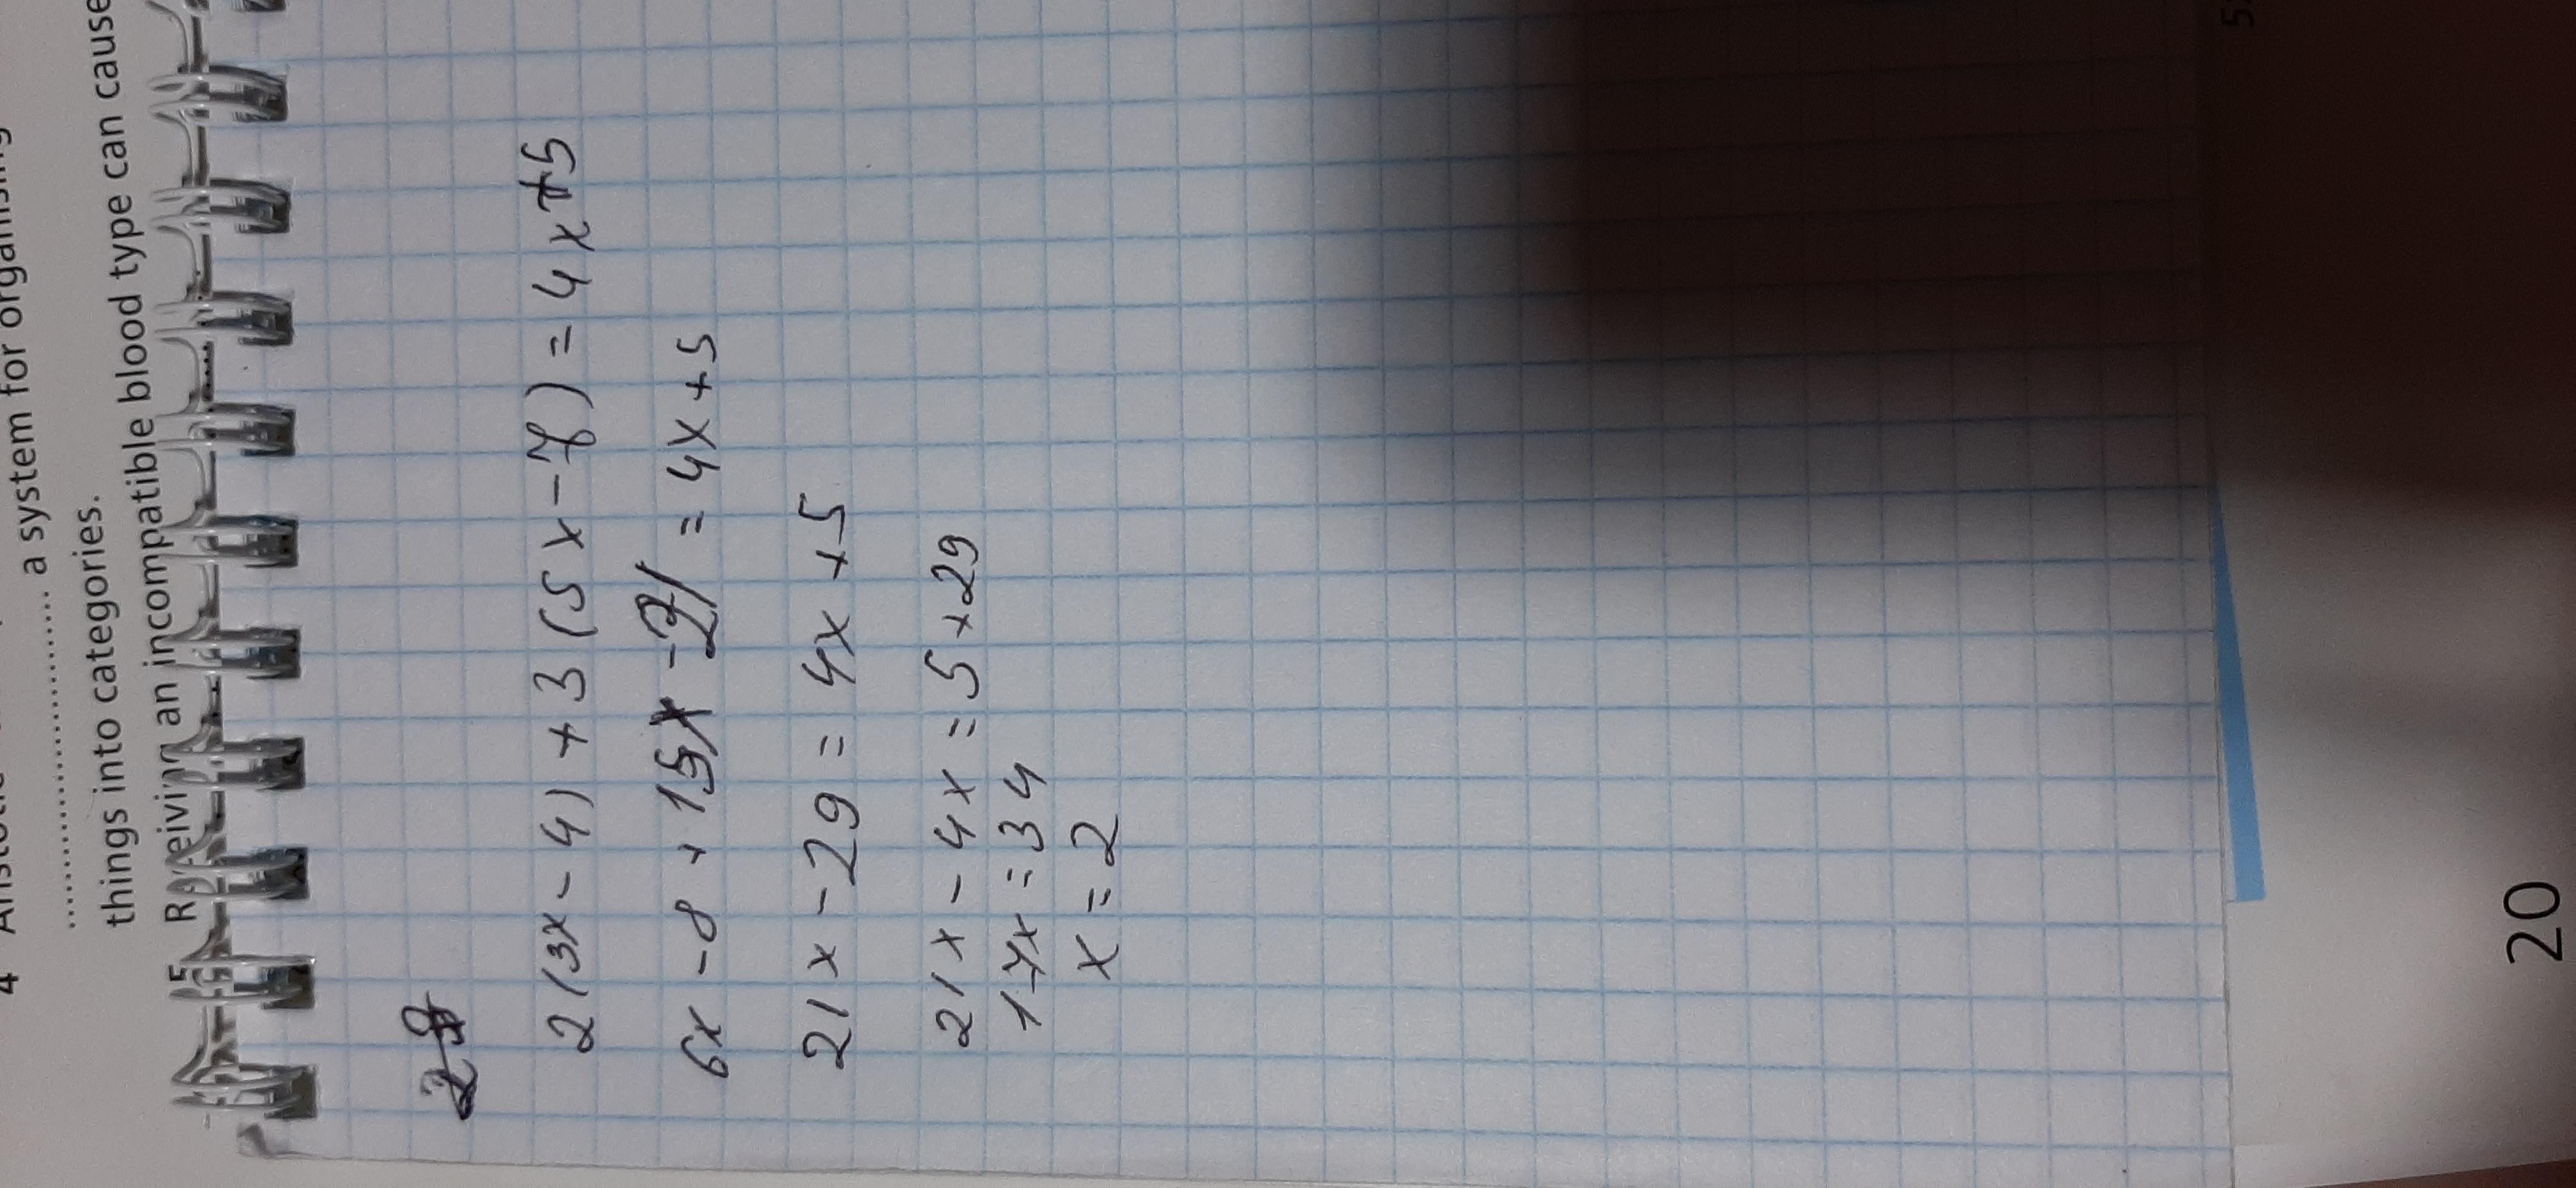 a system for organising
things into categories.
an incompatible blood type can cause
2(3x-4)+3(5x-7)=4x+5
6x-8+15x-21=4x+5
21x-29=4x+5
21x-4x=5+29
17x=34
x=2
20